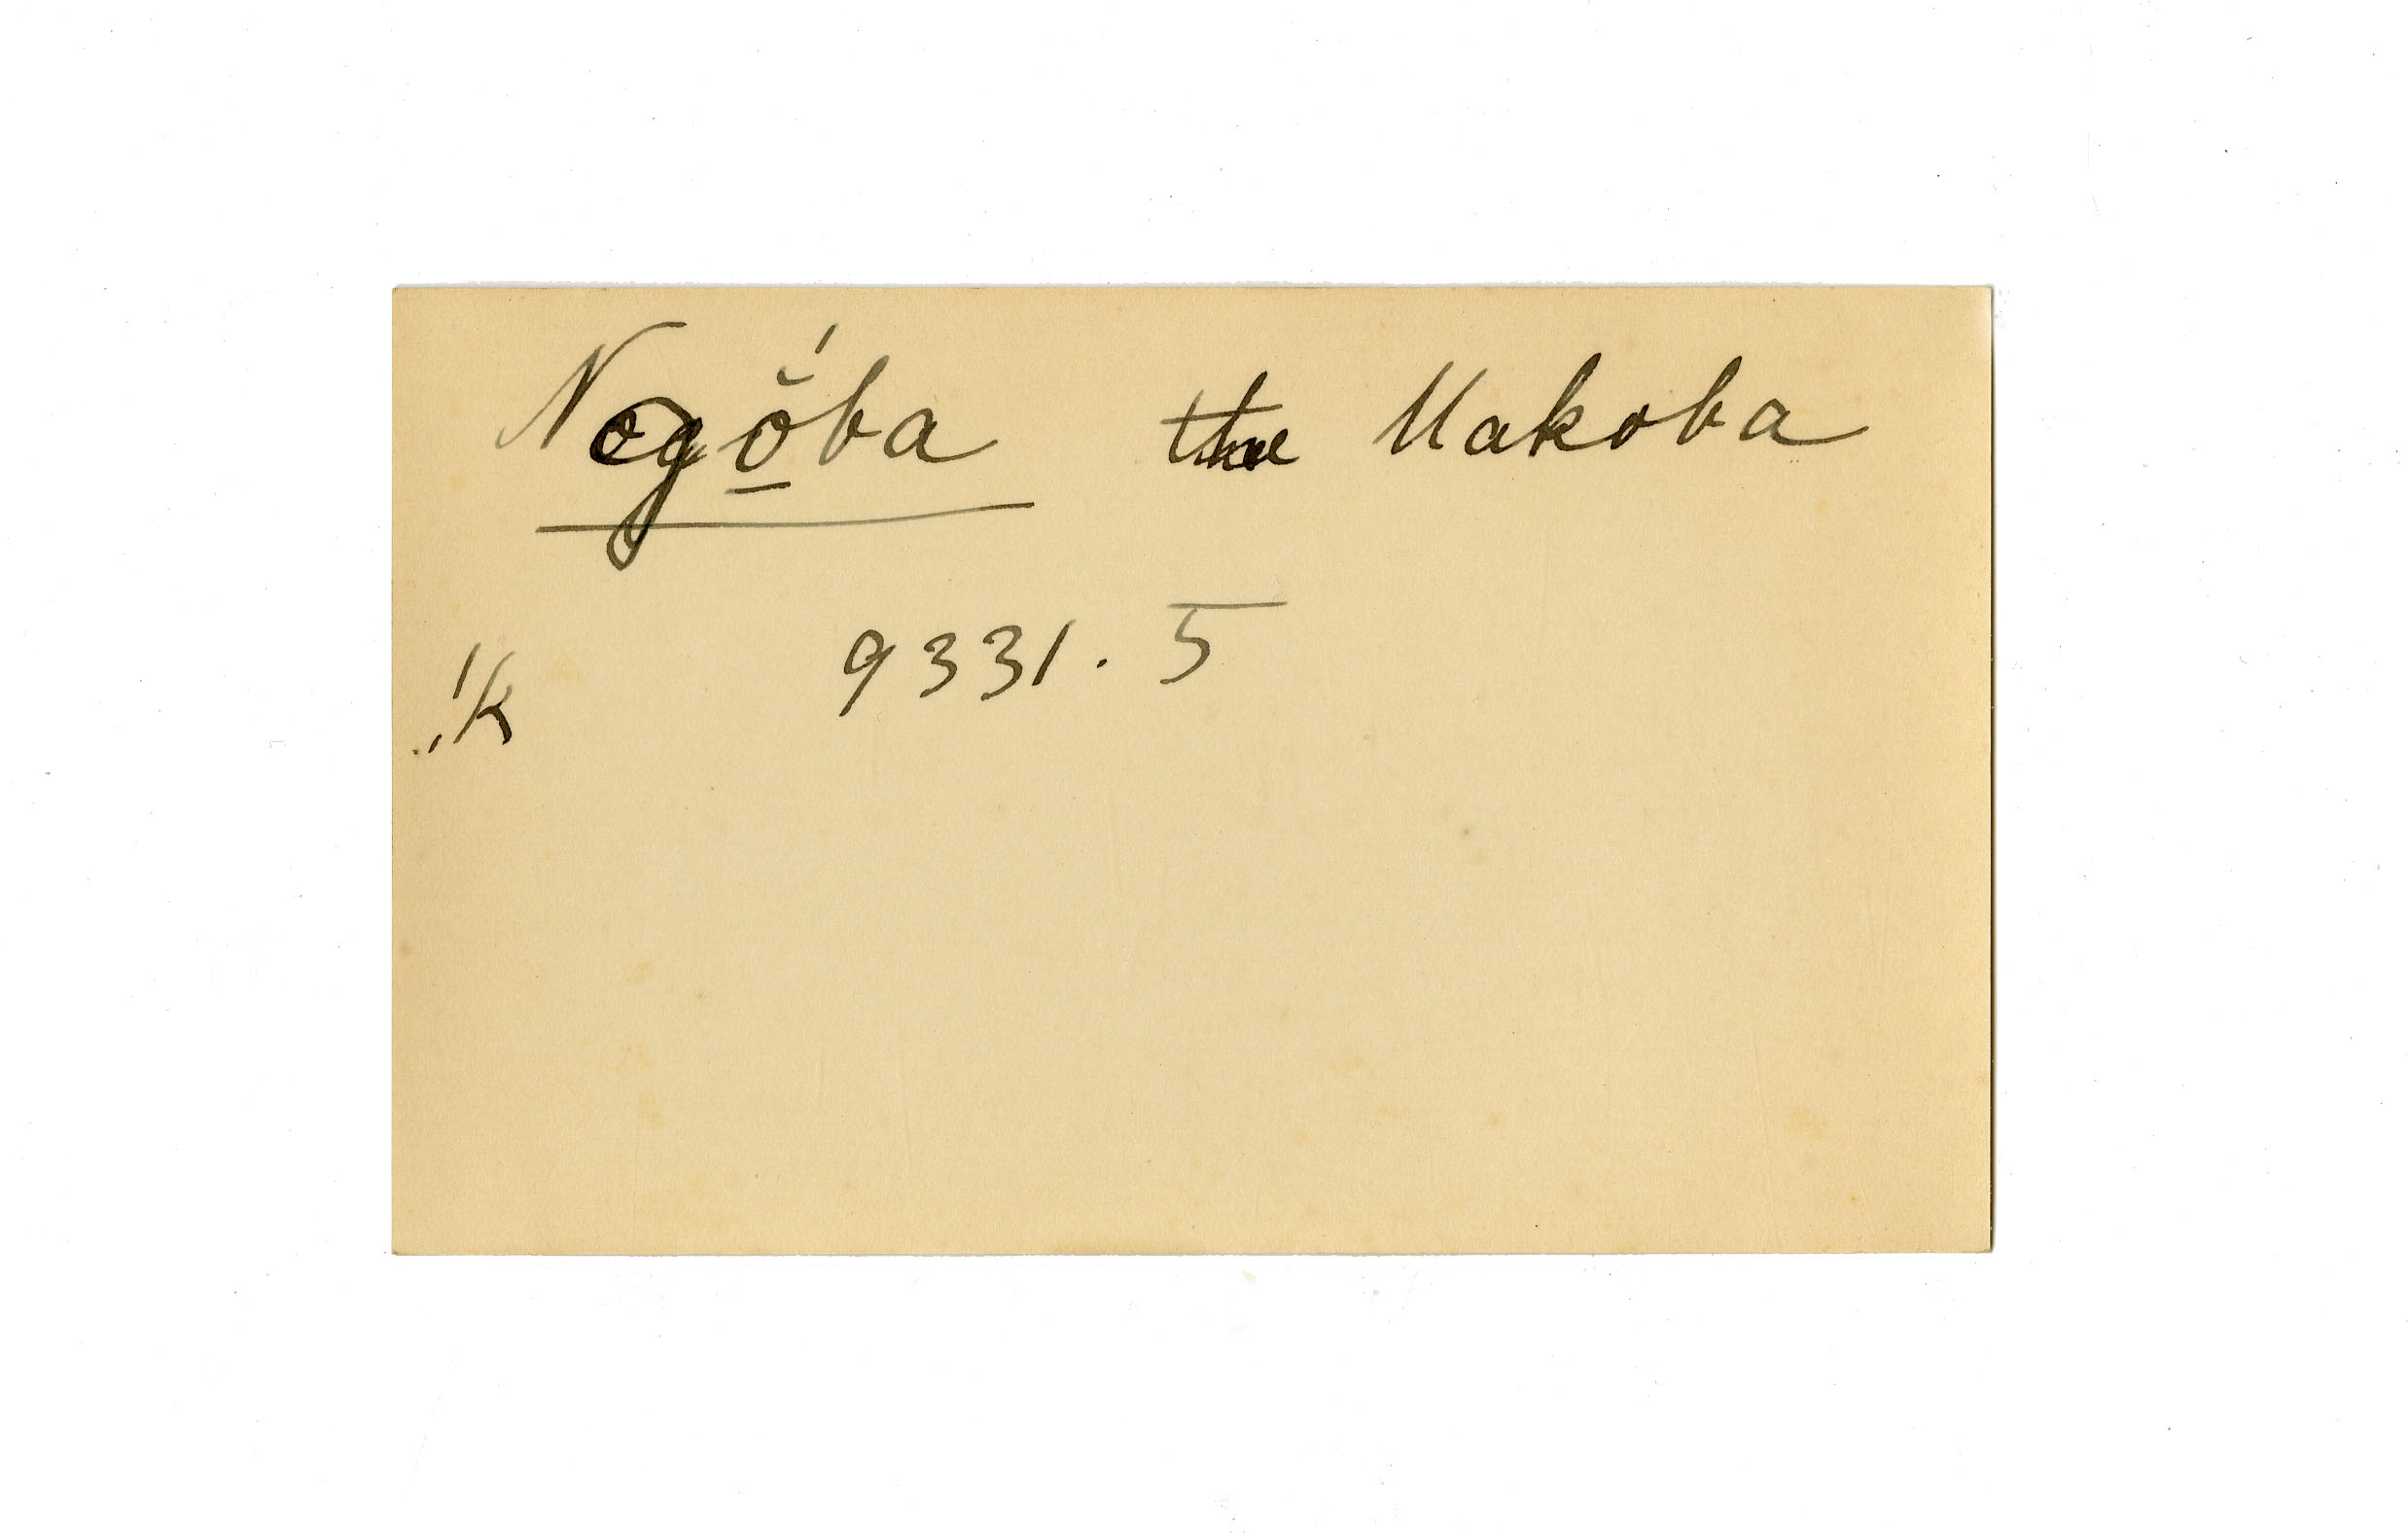 Nogŏ́ba the Makoba
9331.5
!k